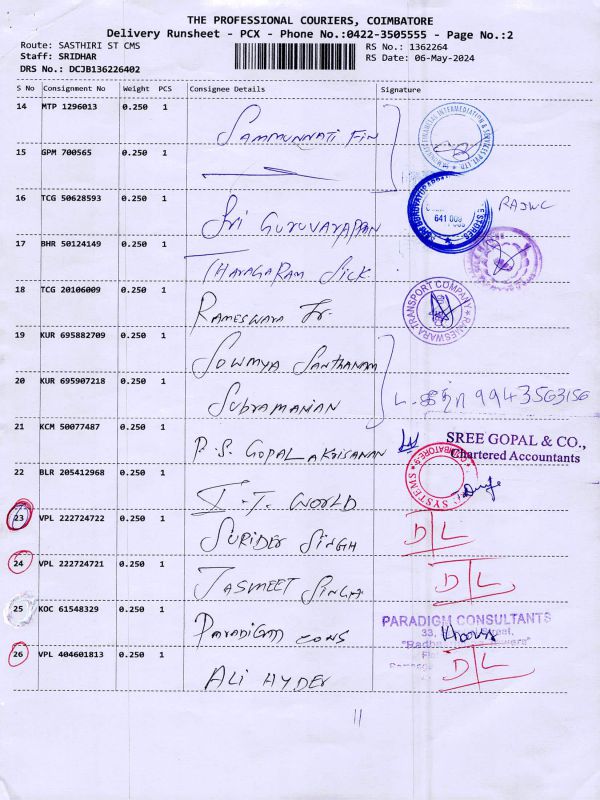 THE PROFESSIONAL COURIERS, COIMBATORE
Delivery Runsheet - PCX - Phone No.:0422-3505555 - Page No.:2
Route: SASTHIRI ST CMS
RS No.: 1362264
Staff: SRIDHAR
RS Date: 06-May-2024
DRS No.: DCJB136226402
S No Consignment No Weight PCS Consignee Details Signature
14 MTP 1296013 0.250 1 Sammunnati Fin
15 GPM 700565 0.250 1
16 TCG 50628593 0.250 1 Sri Guruvayappan 641 009 RAJWC
17 BHR 50124149 0.250 1 Thayagaram Sick.
18 TCG 20106009 0.250 1 Rameswara Tr. RAMESWARA TRANSPORT COMPANY
19 KUR 695882709 0.250 1 Sowmya Santhanam
20 KUR 695907218 0.250 1 Subramanian 9943563156
21 KCM 50077487 0.250 1 P.S. Gopalakrisanan SREE GOPAL & CO.,
Chartered Accountants
22 BLR 205412968 0.250 1 I.T. World SYSTEMS COIMBATORE
23 VPL 222724722 0.250 1 Surider Singh D/L
24 VPL 222724721 0.250 1 Jasmeet Singh D/L
25 KOC 61548329 0.250 1 Paradigm Cons PARADIGM CONSULTANTS
33, Street,
"Radha
26 VPL 404601813 0.250 1 Ali Hyder D/L
11